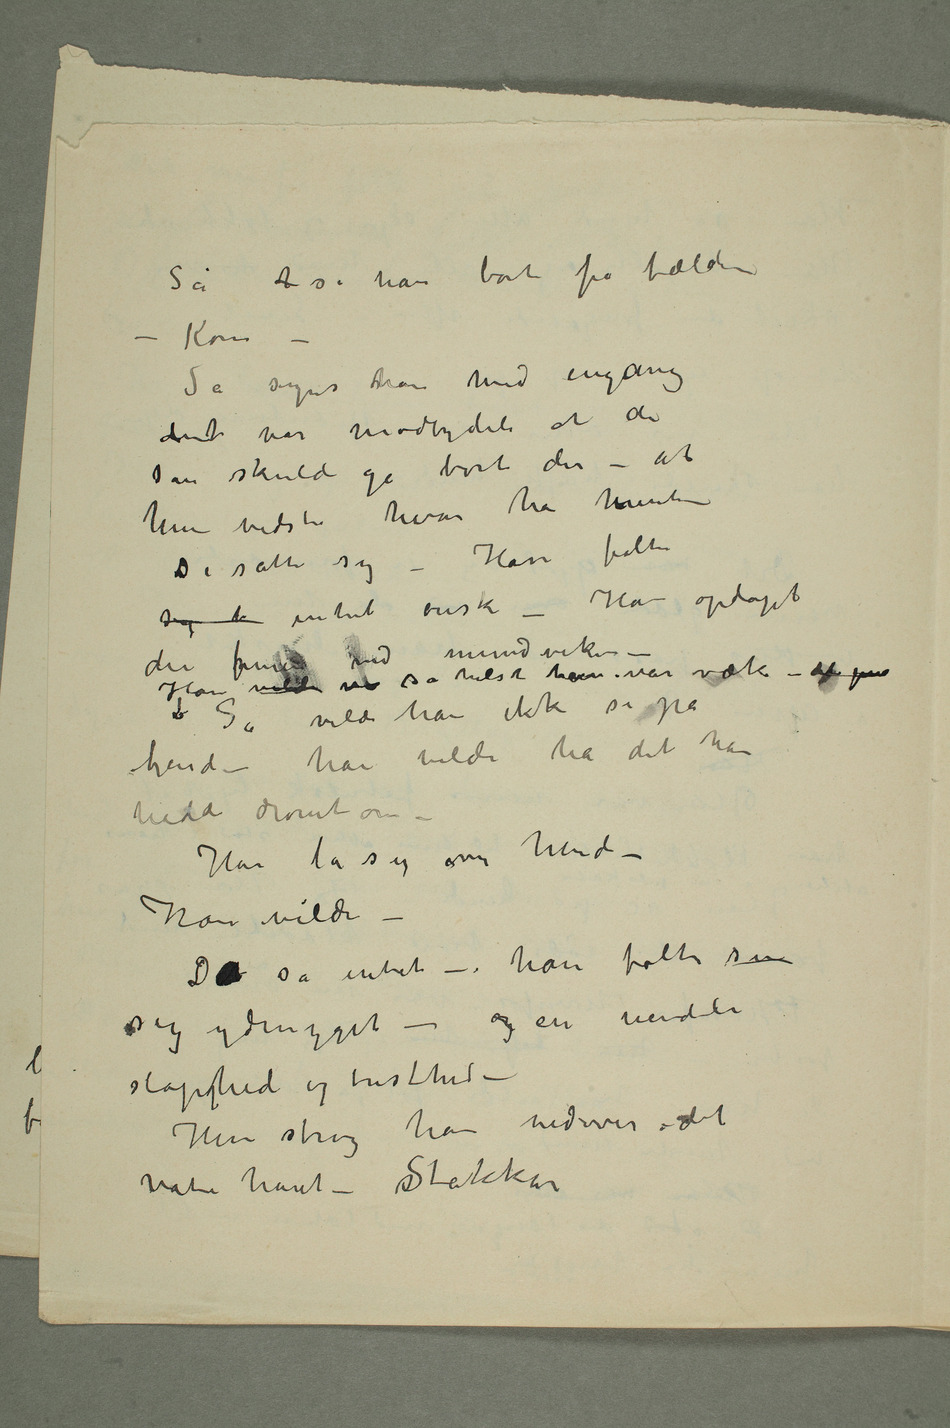 Så så han bort fra fælden
– Kom –
Så synes han med engang
det var modbydeli at de
sån skulde gå bort der – at
hun vidste hvor han mente
De satte sig – Han følte
sig intet ønske – Han opdaget
den ved mundviken –
Han vilde så helst hun var væk –
Så vilde han ikke se på
hende – han vilde ha det han
hadde drømt om –
Han la sig over hende –
Han vilde –
Da så intet – han følte
sig ydmyget – og en uendeli
slaphed og tristhed –
Hun strøg ham nedover det
våte håret – Stakkar
l
f